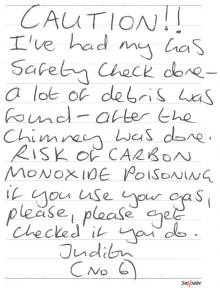 CAUTION!!
I've had my Gas
Safety Check done-
a lot of debris was
found-after the
Chimney was done.
RISK OF CARBON
MONOXIDE POISONING
if you use your gas,
please, please get
checked if you do.
Judith
(No 6)